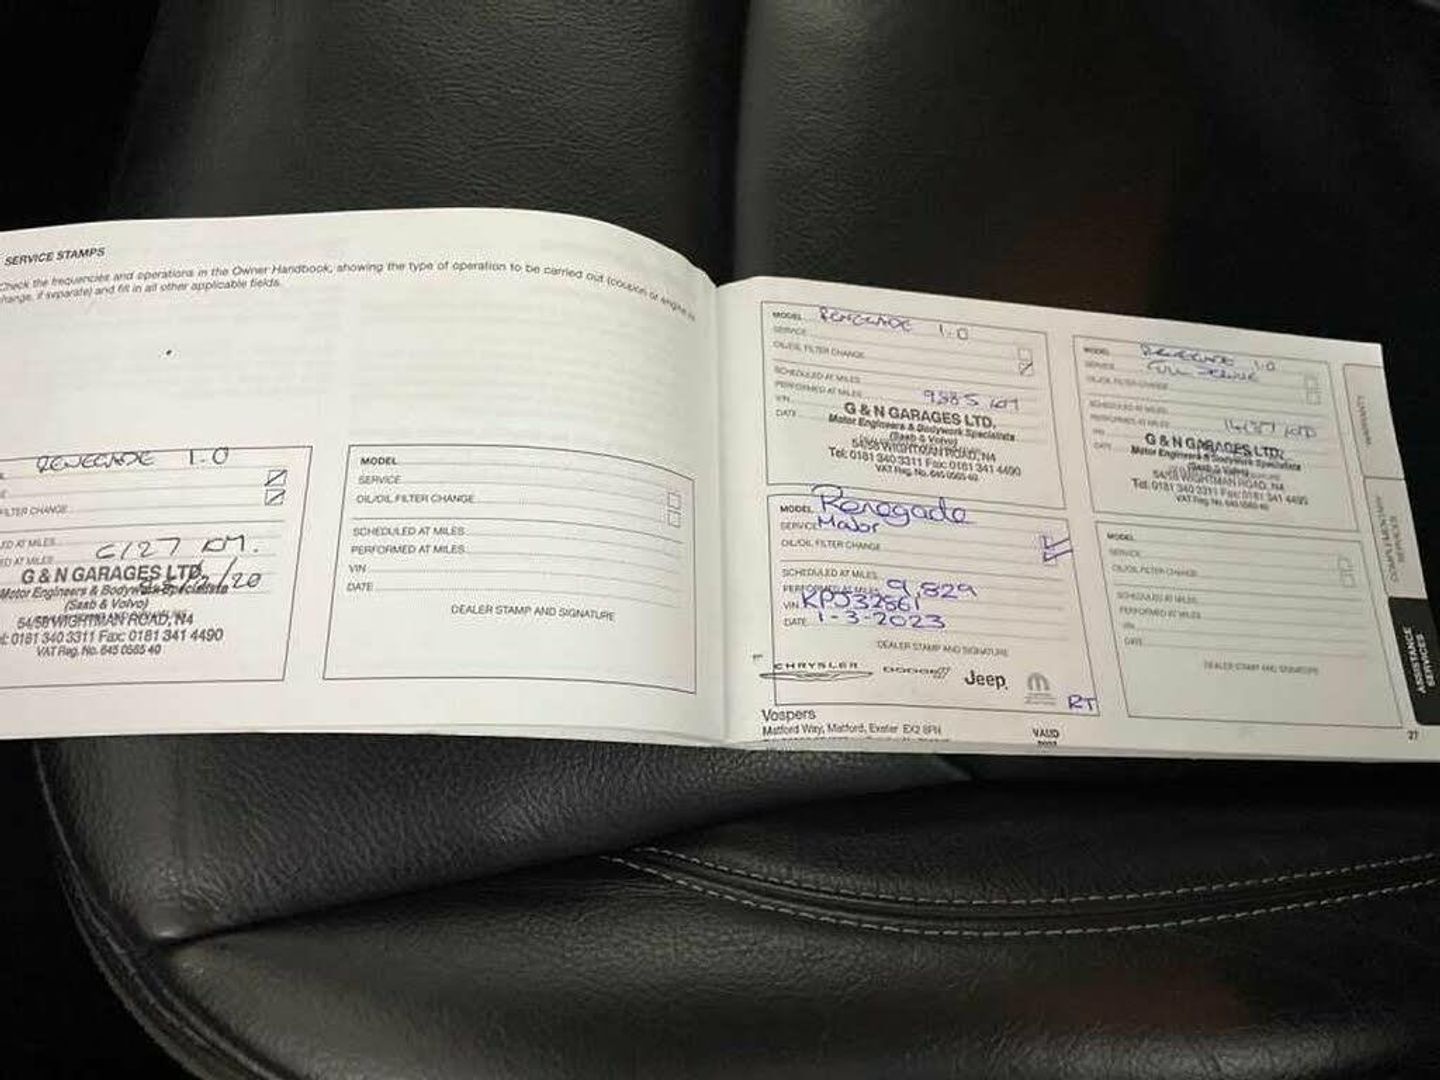 SERVICE STAMPS
Check the frequencies and operations in the Owner Handbook, showing the type of operation to be carried out (coupon or engine oil
change, if separate) and fill in all other applicable fields.
RENEGADE 1.0
FILTER CHANGE
ED AT MILES
ED AT MILES 6127 KM.
G & N GARAGES LTD.
/20
Motor Engineers & Bodywork Specialists
(Saab & Volvo)
54/58 WIGHTMAN ROAD, N4
l: 0181 340 3311 Fax: 0181 341 4490
VAT Reg. No. 645 0565 40
MODEL
SERVICE
OIL/OIL FILTER CHANGE
SCHEDULED AT MILES
PERFORMED AT MILES
VIN
DATE
DEALER STAMP AND SIGNATURE
MODEL RENEGADE 1.0
SERVICE
OIL/OIL FILTER CHANGE
SCHEDULED AT MILES
PERFORMED AT MILES 9885 KM
VIN
DATE
G & N GARAGES LTD.
Motor Engineers & Bodywork Specialists
(Saab & Volvo)
54/58 WIGHTMAN ROAD, N4
Tel: 0181 340 3311 Fax: 0181 341 4490
VAT Reg. No. 645 0565 40
MODEL RENEGADE 1.0
SERVICE FULL SERVICE
OIL/OIL FILTER CHANGE
SCHEDULED AT MILES
PERFORMED AT MILES
VIN
DATE
G & N GARAGES LTD.
Motor Engineers & Bodywork Specialists
(Saab & Volvo)
54/58 WIGHTMAN ROAD, N4
Tel: 0181 340 3311 Fax: 0181 341 4490
VAT Reg. No. 645 0565 40
MODEL Renegade
SERVICE Major
OIL/OIL FILTER CHANGE
SCHEDULED AT MILES
PERFORMED AT MILES 9,829
VIN KPJ32861
DATE 1-3-2023
DEALER STAMP AND SIGNATURE
CHRYSLER DODGE Jeep
RT
Vospers
Matford Way, Matford, Exeter EX2 8FN
VALID
MODEL
SERVICE
OIL/OIL FILTER CHANGE
SCHEDULED AT MILES
PERFORMED AT MILES
VIN
DATE
DEALER STAMP AND SIGNATURE
WARRANTY
COMPLEMENTARY
SERVICES
ASSISTANCE
SERVICES
27